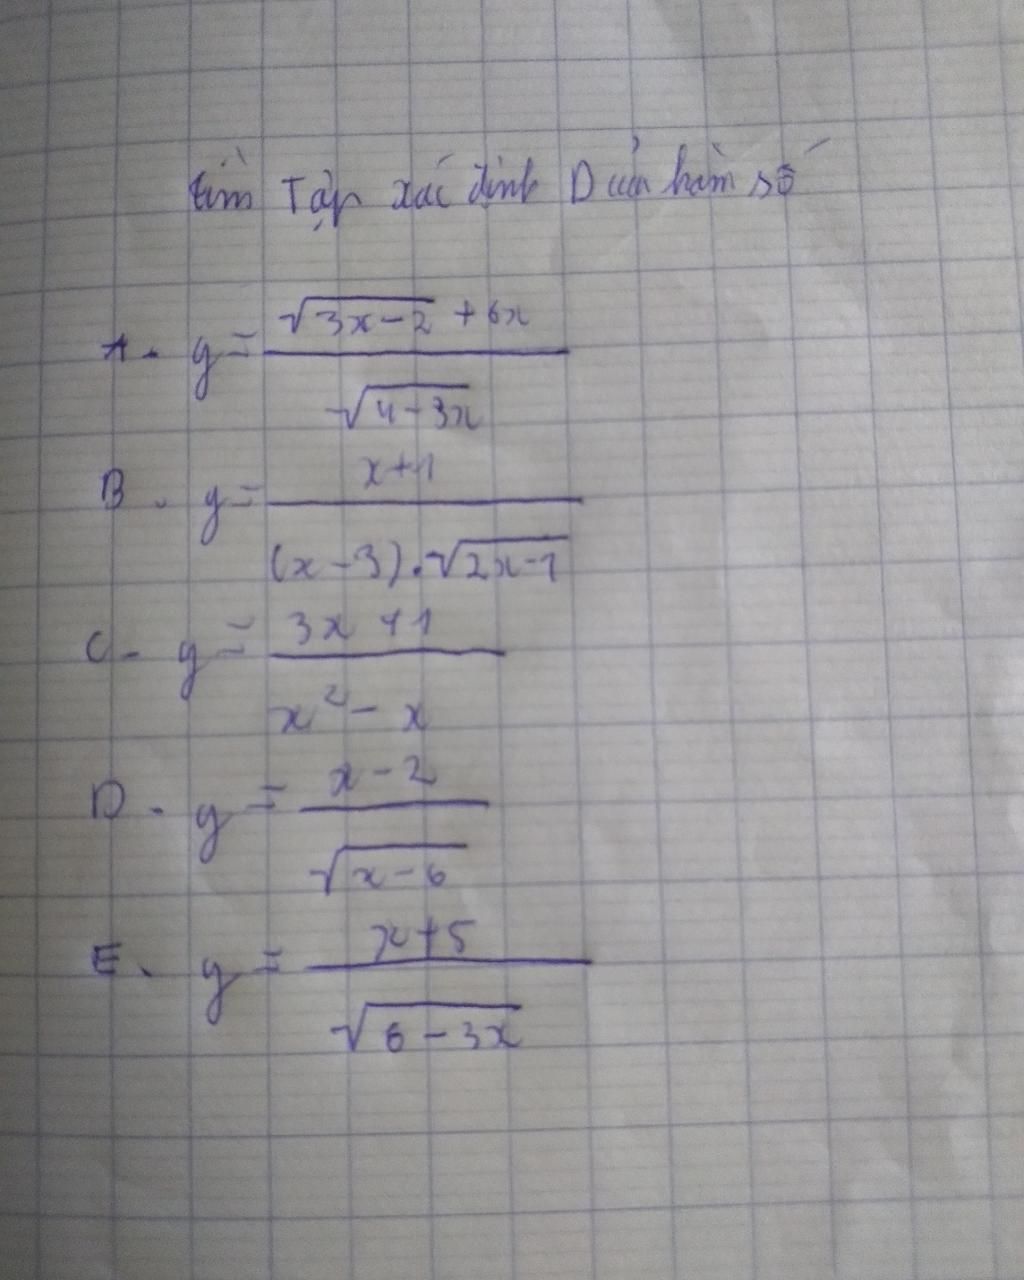 tìm Tập xác định D của hàm số
A. y = \frac{\sqrt{3x-2}+6x}{\sqrt{4-3x}}
B. y = \frac{x+1}{(x-3).\sqrt{2x-1}}
C. y = \frac{3x+1}{x^2-x}
D. y = \frac{x-2}{\sqrt{x-6}}
E. y = \frac{x+5}{\sqrt{6-3x}}